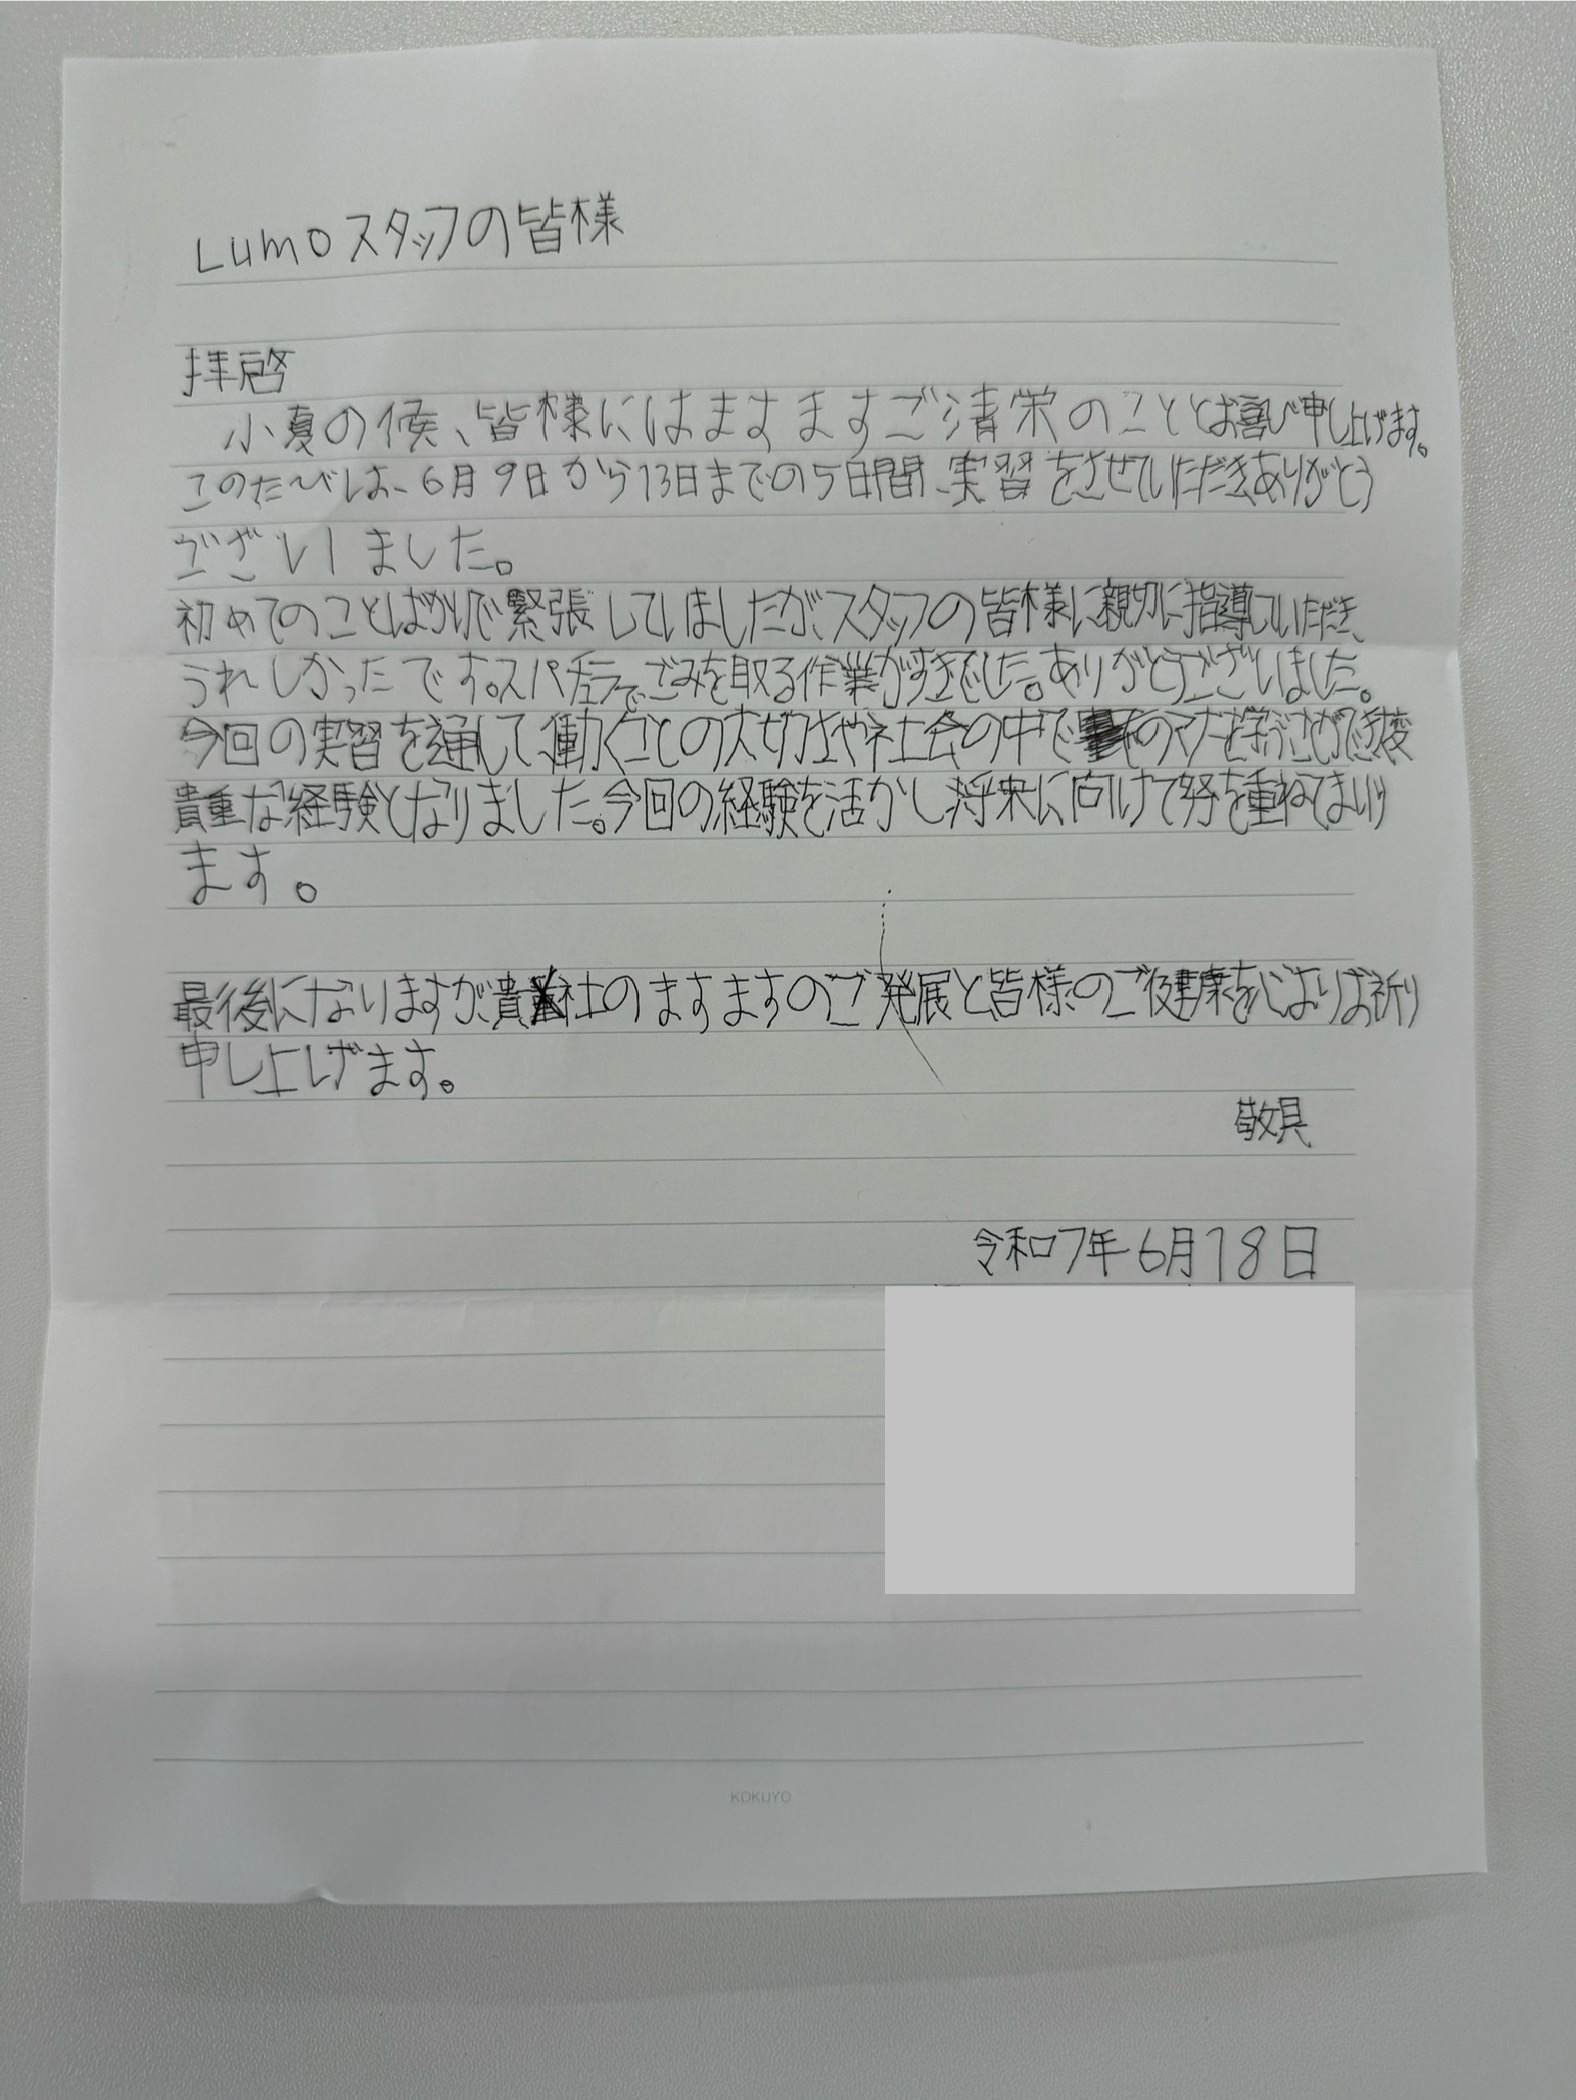 Lumoスタッフの皆様
拝啓
小夏の候、皆様にはますますご清栄のこととお喜び申し上げます。
このたびは、6月9日から13日までの5日間、実習をさせていただきありがとう
ございました。
初めてのことばかりで緊張していましたが、スタッフの皆様に親切に指導していただき、
うれしかったです。スパチュラでごみを取る作業がすきでした。ありがとうございました。
今回の実習を通して、働くことの大切さや社会の中でのマナーを学ぶことができ大変
貴重な経験となりました。今回の経験を活かし将来に向けて努を重ねてまいり
ます。
最後になりますが、貴社のますますのご発展と皆様のご健康を心よりお祈り
申し上げます。
敬具
令和7年6月18日
KOKUYO